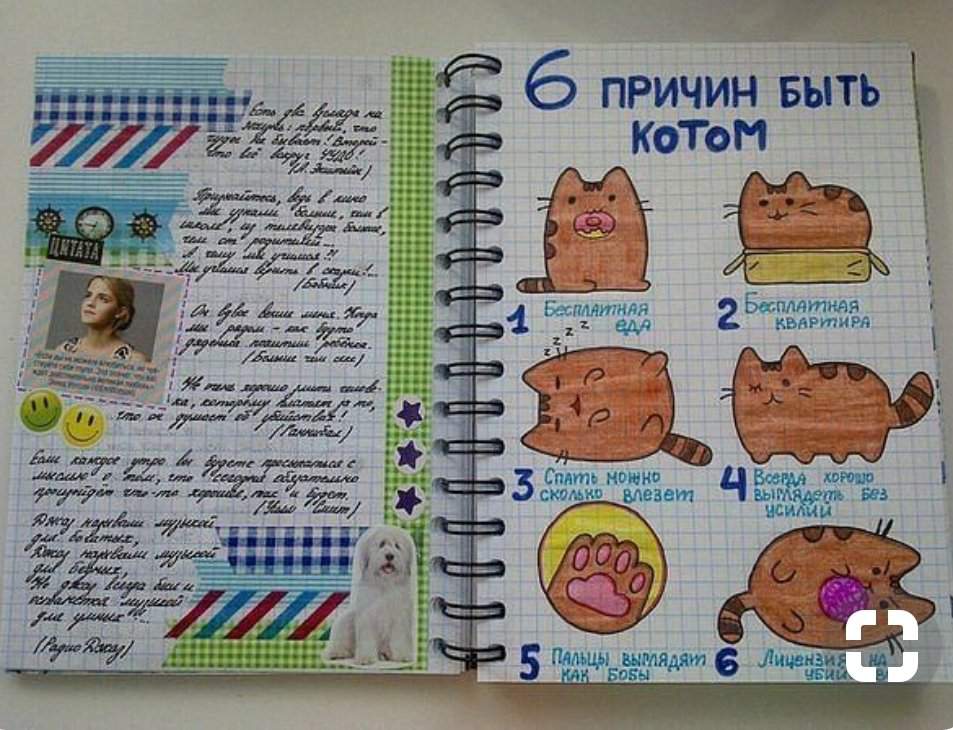 Есть два взгляда на
жизнь: первый, что
чудес не бывает! Второй -
что всё вокруг ЧУДО!
(А. Эйнштейн)
Признайтесь, ведь в кино
мы узнали больше, чем в
школе, из телевизора больше,
чем от родителей...
А чему мы учимся?!
Мы учимся верить в сказки!...
ЦИТАТА
Он вдвое выше меня. Когда
мы рядом - как будто
дяденька похитил ребёнка.
(Больше чем секс)
Не очень хорошо злить челове-
ка, которому платят за то,
что он думает об убийствах!
(Ганнибал)
Если каждое утро вы будете просыпаться с
мыслью о том, что сегодня обязательно
произойдёт что-то хорошее, так и будет.
(Уилл Смит)
Джаз называли музыкой
для богатых,
Джаз называли музыкой
для бедных,
Но джаз всегда был и
останется музыкой
для умных!...
(Радио Джаз)
6 ПРИЧИН БЫТЬ
КОТОМ
1 Бесплатная
еда
2 Бесплатная
квартира
z z z z
3 Спать можно
сколько влезет
4 Всегда хорошо
выглядеть без
усилий
5 Пальцы выглядят
как бобы
6 Лицензия на